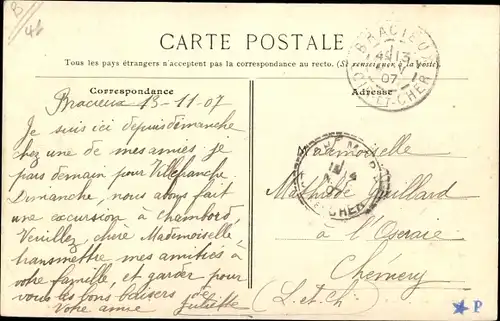 B
46
CARTE POSTALE
Tous les pays étrangers n'acceptent pas la correspondance au recto. (Se renseigner à la poste).
Correspondance
Bracieux 13-11-07
Je suis ici depuis dimanche
chez une de mes amies je
pars demain pour Villefranche
Dimanche, nous avons fait
une excursion à Chambord,
Veuillez, chère Mademoiselle
transmettre mes amitiés à
votre famille, et garder pour
vous les bons baisers de
Votre amie Juliette
Adresse
Mademoiselle
Mathilde Guillard
à l'Oseraie
Chémery
(L. et Ch)
BRACIEUX
13
07
LOIR-ET-CHER
CHER
P